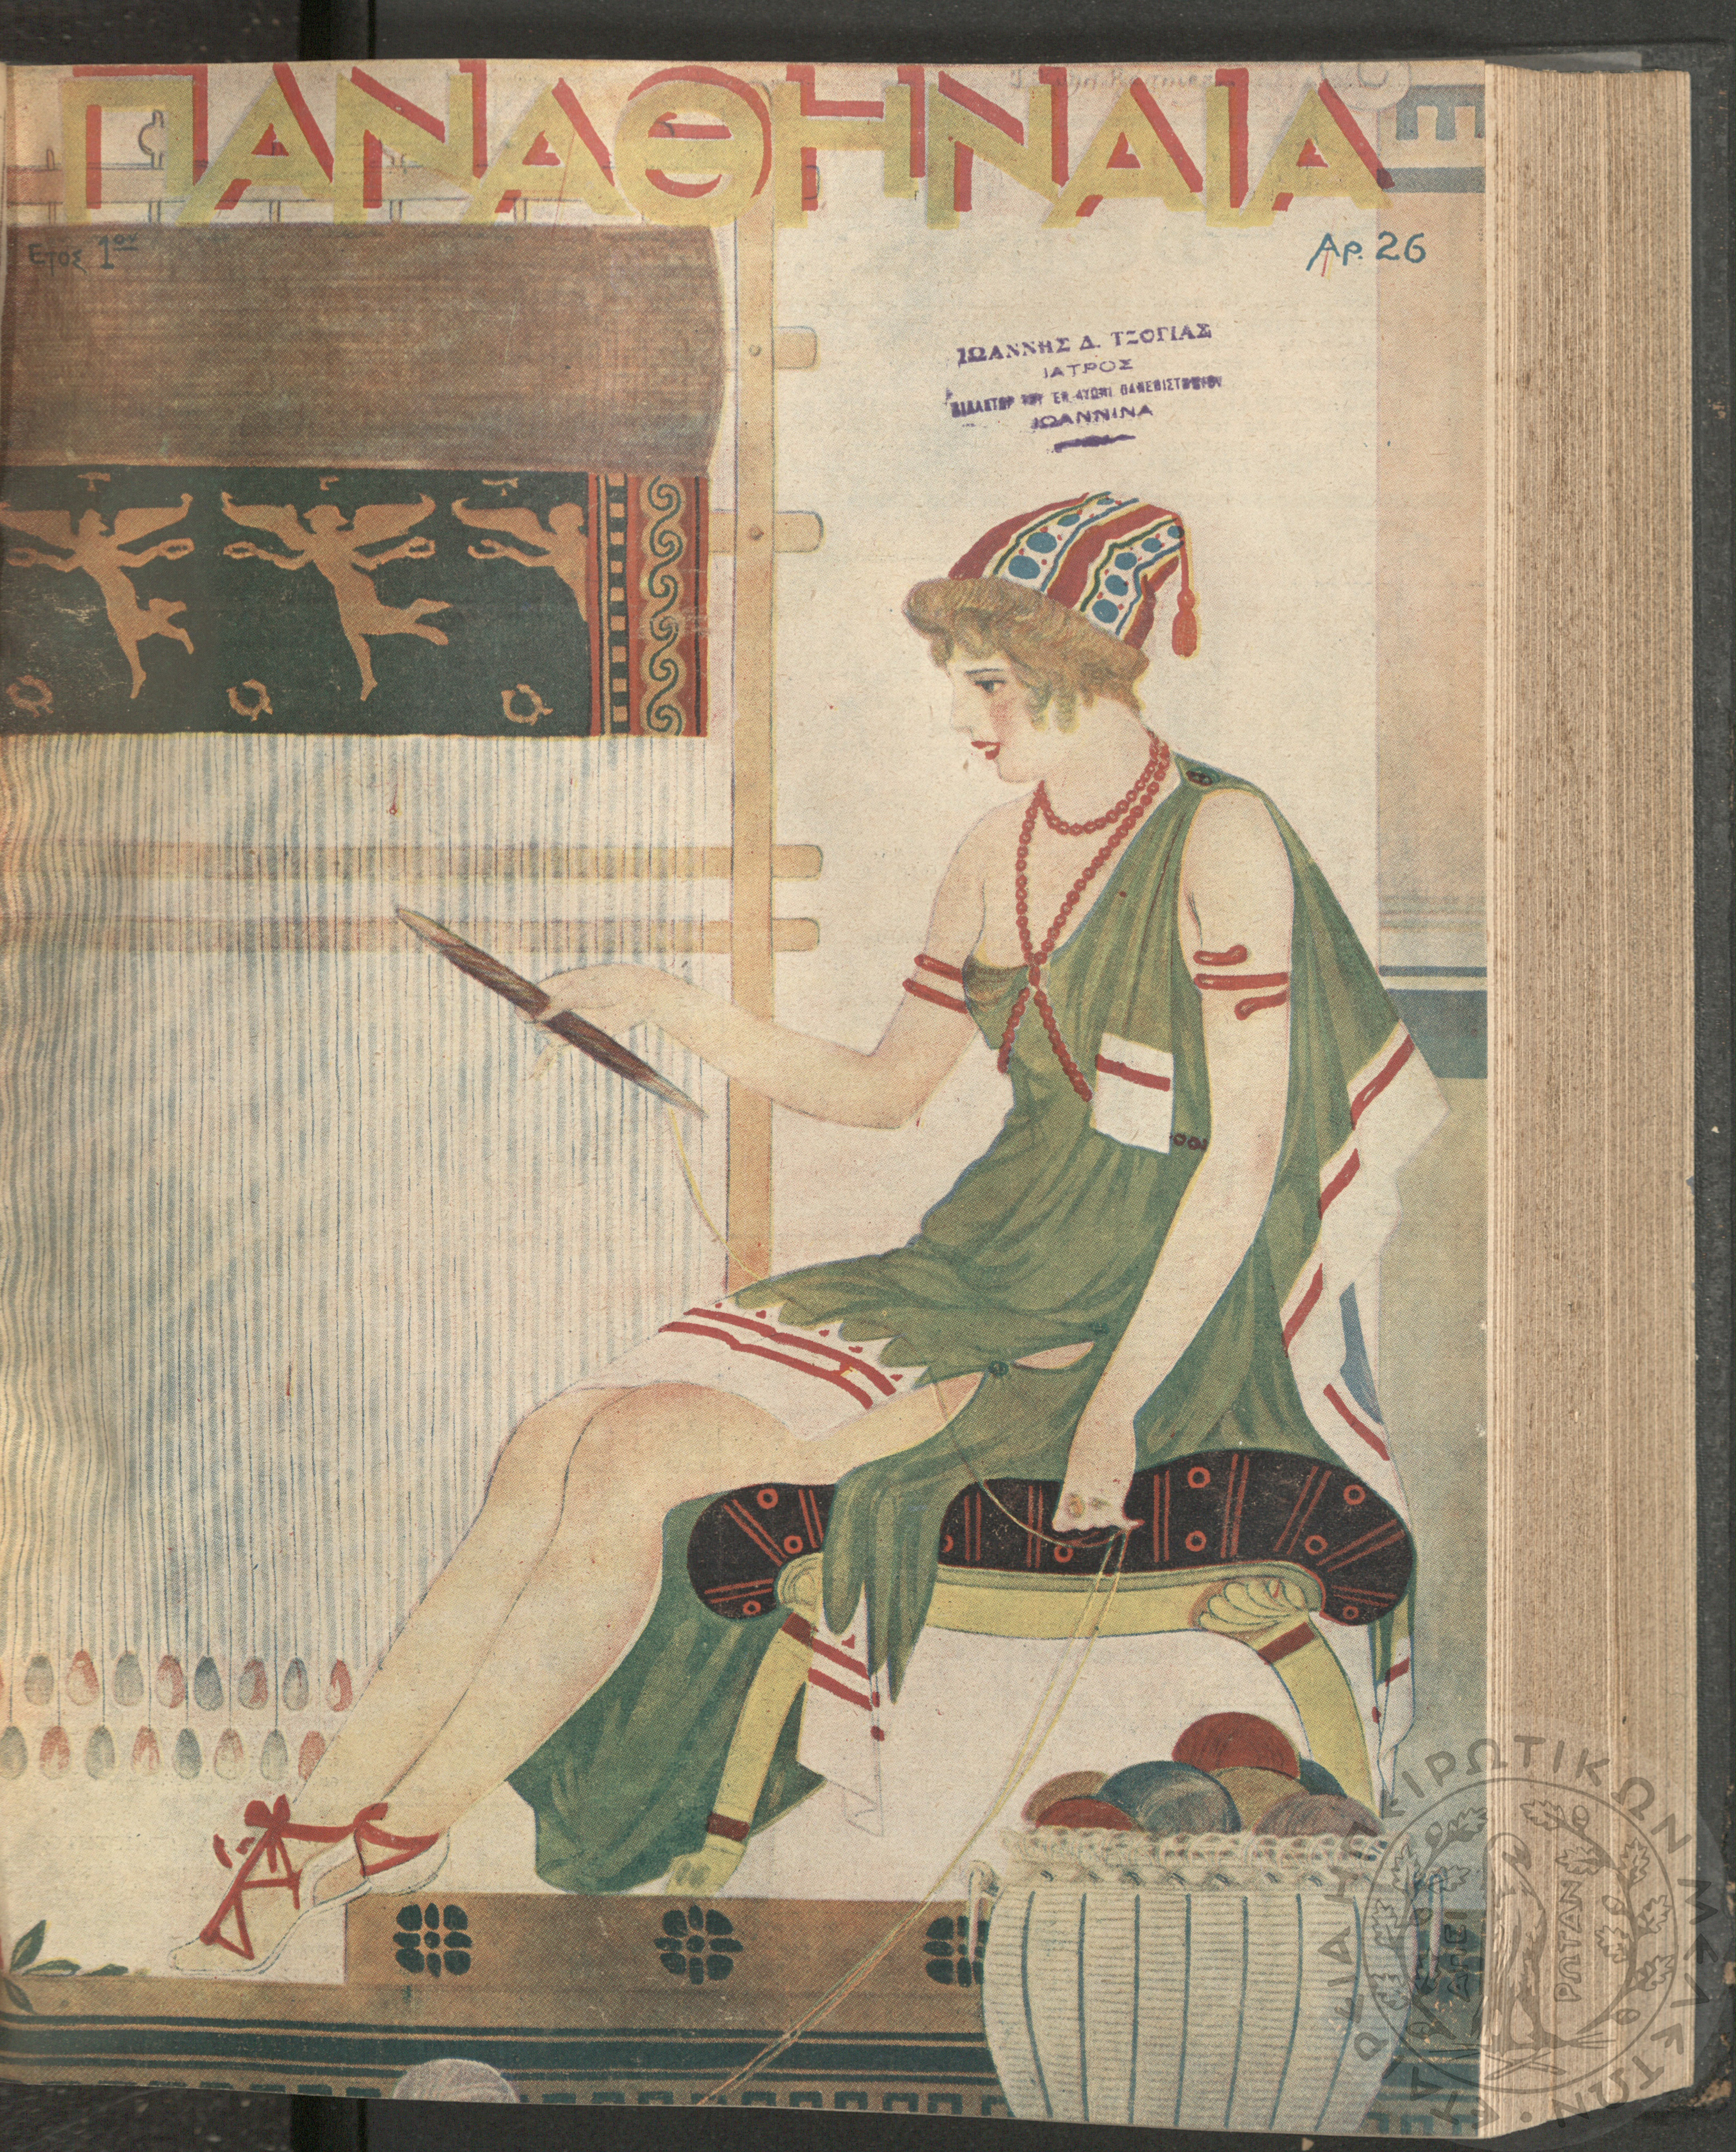 ΠΑΝΑΘΗΝΑΙΑ
Ετος 1ον
Αρ. 26
ΙΩΑΝΝΗΣ Δ. ΤΖΟΓΙΑΣ
ΙΑΤΡΟΣ
ΔΙΔΑΚΤΩΡ ΤΟΥ ΕΝ ΠΑΝΕΠΙΣΤΗΜΙΟΥ
ΙΩΑΝΝΙΝΑ
ΕΤΑΙΡΕΙΑ ΗΠΕΙΡΩΤΙΚΩΝ ΜΕΛΕΤΩΝ
ΑΠΕΙ
ΡΩΤΑΝ